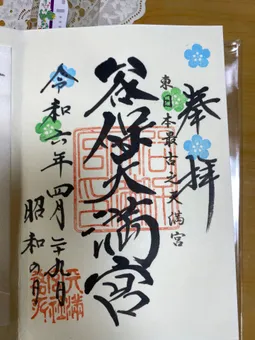 奉拝
東日本最古之天満宮
谷保天満宮
令和六年四月二十九日
昭和の日